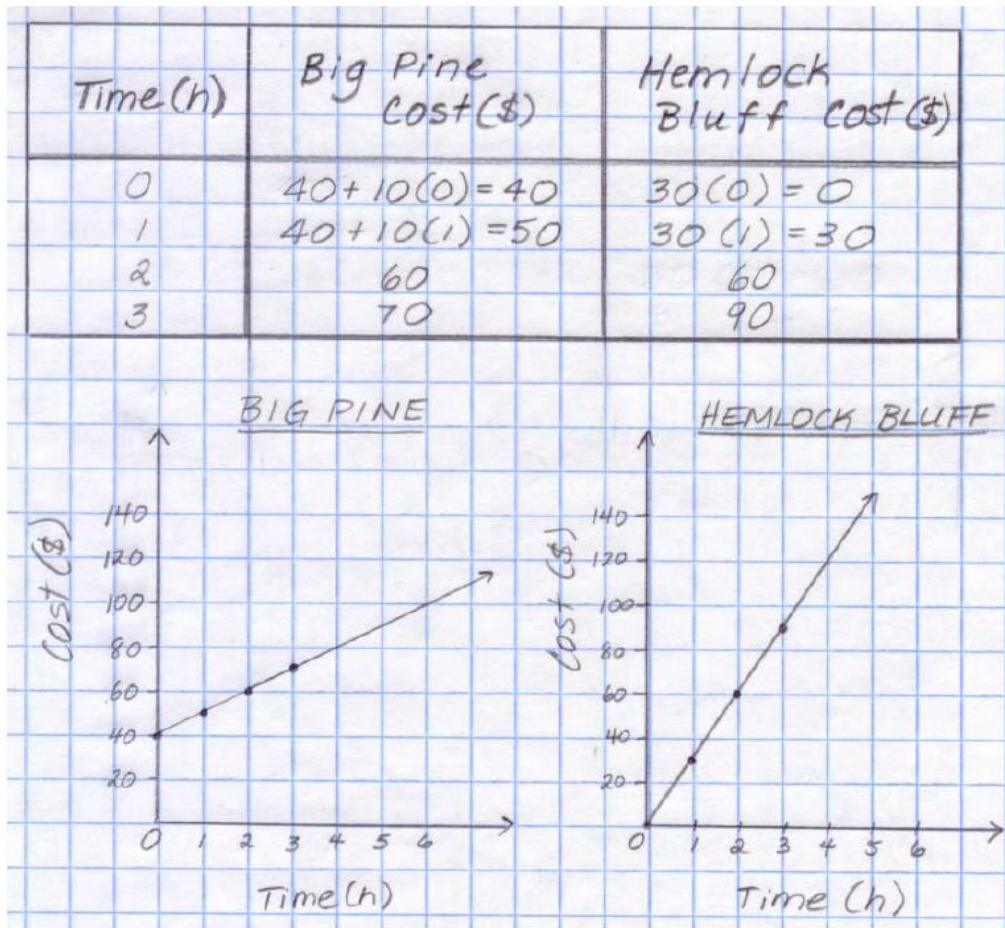 Time(h)
Big Pine
Cost($)
Hemlock
Bluff Cost($)
0 40+10(0)=40 30(0)=0
1 40+10(1)=50 30(1)=30
2 60 60
3 70 90
BIG PINE
Cost($)
140
120
100
80
60
40
20
0 1 2 3 4 5 6
Time(h)
HEMLOCK BLUFF
Cost($)
140
120
100
80
60
40
20
0 1 2 3 4 5 6
Time(h)